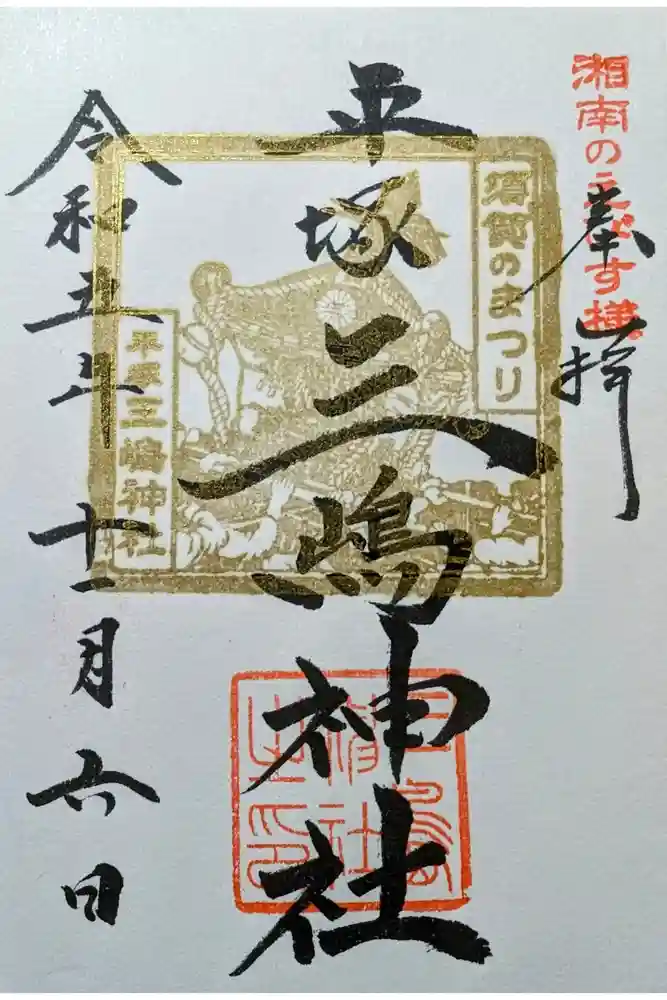 湘南の
奉拝
平塚三嶋神社
須賀のまつり
平塚三嶋神社
令和五年十一月六日